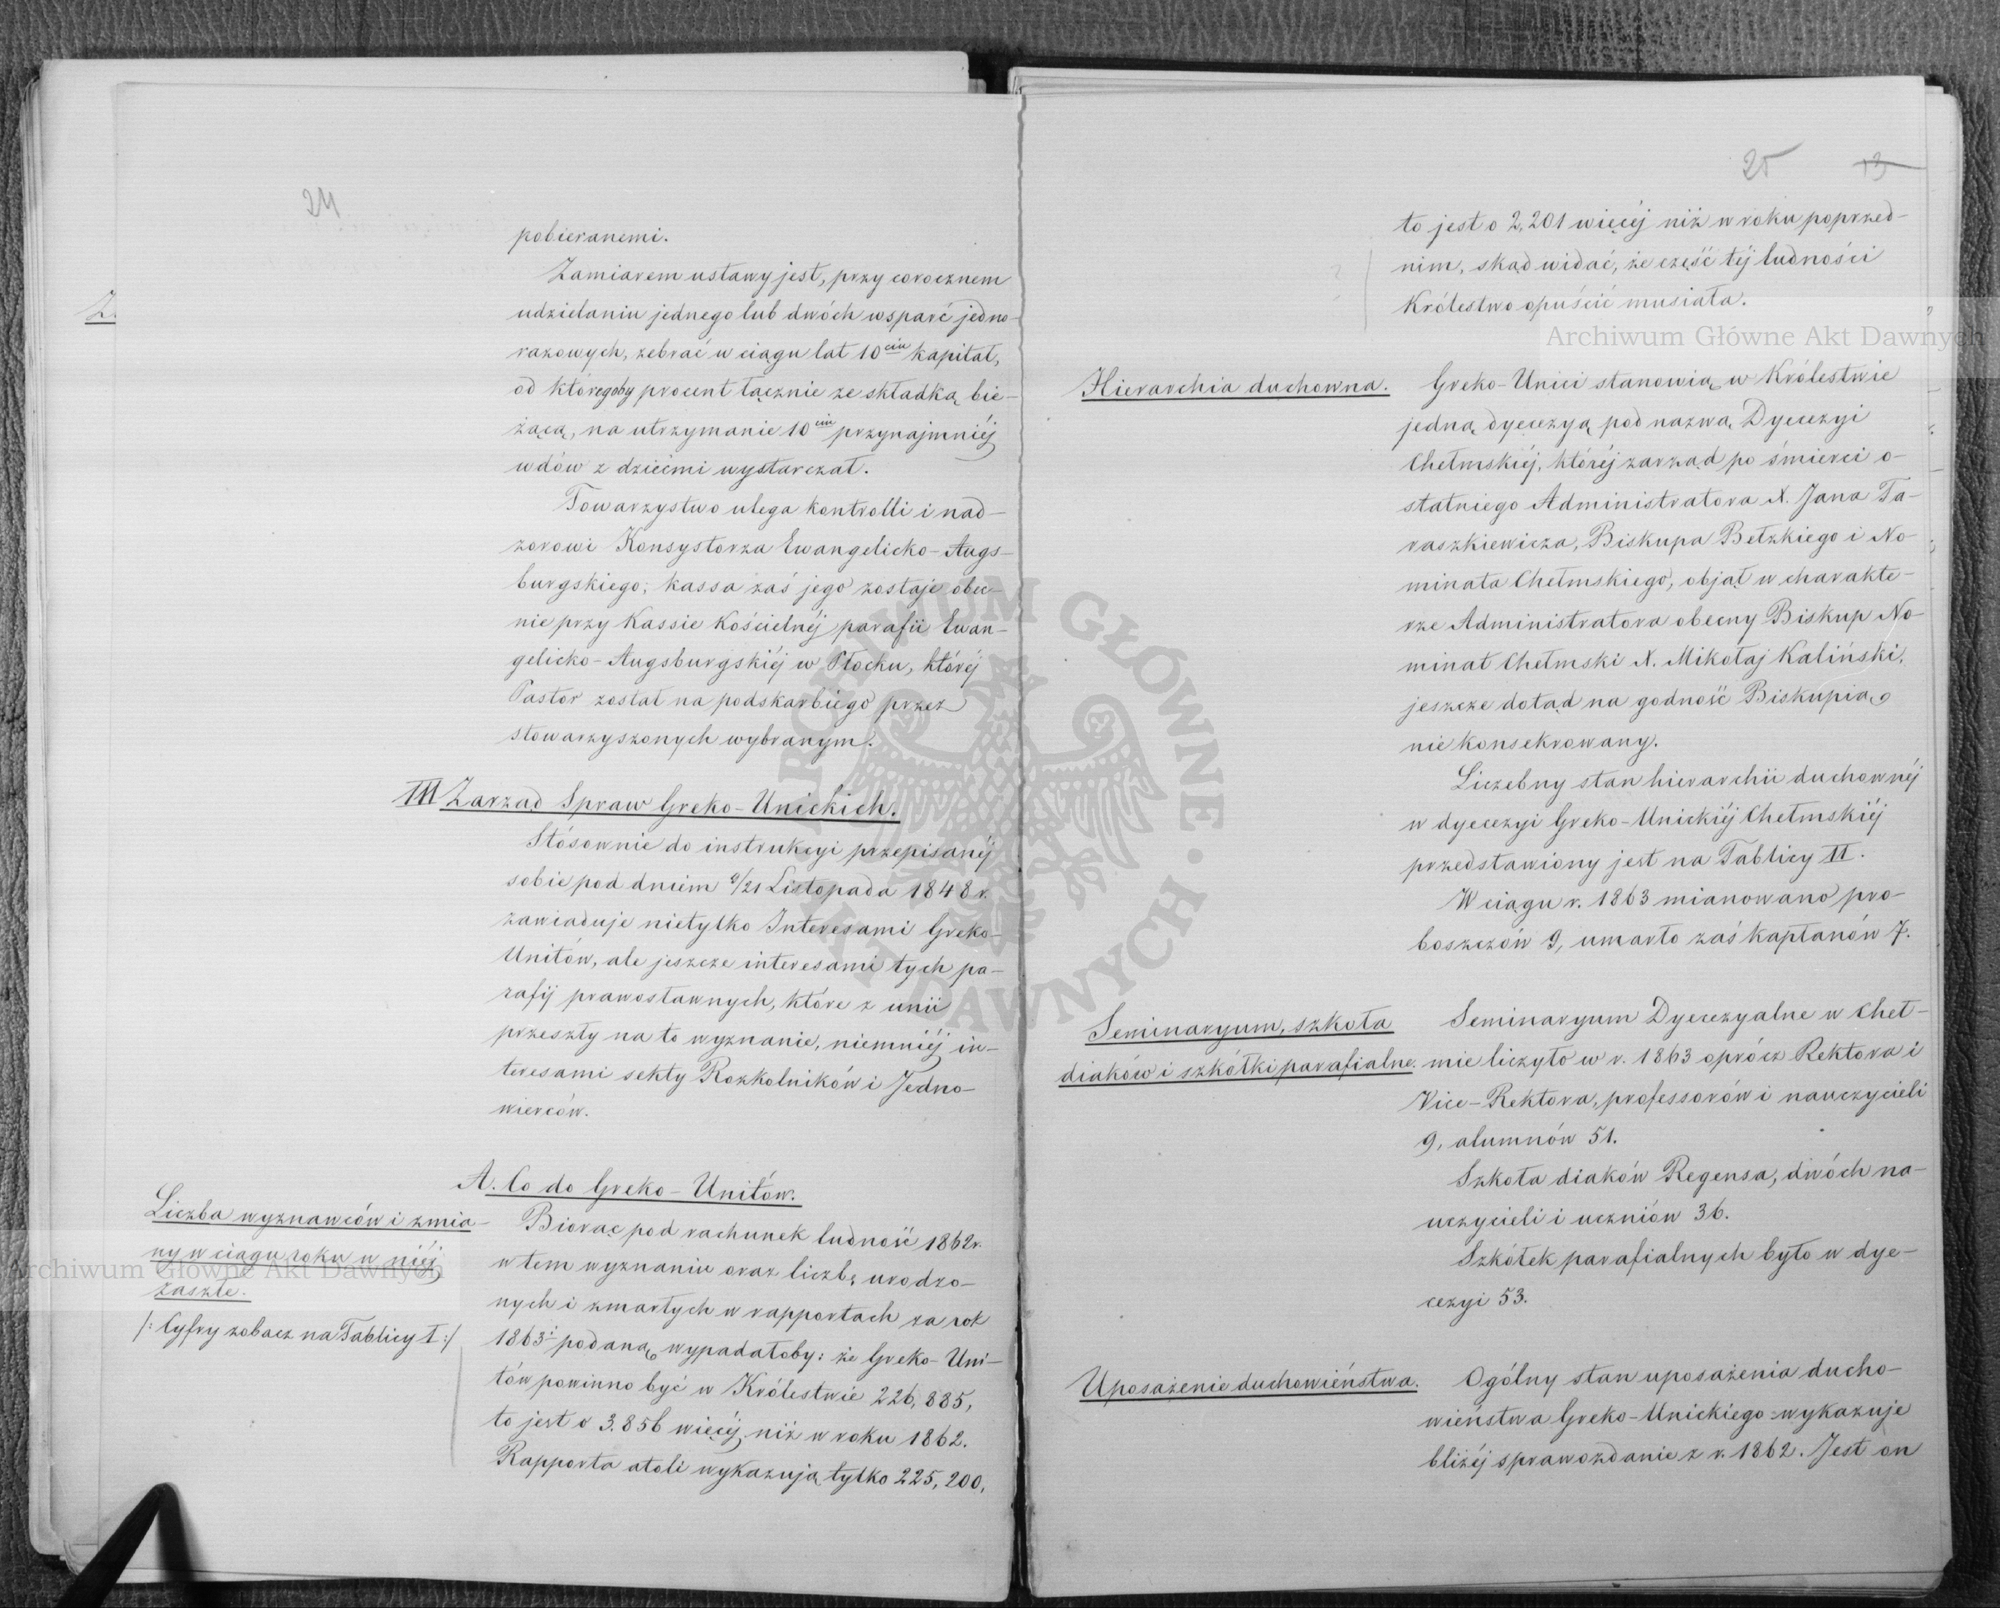 24
pobieranemi.
Zamiarem ustawy jest, przy corocznem
udzielaniu jednego lub dwóch wsparć jedno-
razowych, zebrać w ciągu lat 10ciu kapitał,
od któregoby procent łącznie ze składką bie-
żącą, na utrzymanie 10ciu przynajmniéj
wdów z dziećmi wystarczał.
Towarzystwo ulega kontrolli i nad-
zorowi Konsystorza Ewangelicko-Augs-
burgskiego; kassa zaś jego zostaje obec-
nie przy Kassie Kościelnéj parafii Ewan-
gelicko-Augsburgskiéj w Płocku, któréj
Pastor został na podskarbiego przez
stowarzyszonych wybranym.
III Zarząd Spraw Greko-Unickich.
Stósownie do instrukcyi przepisanéj
sobie pod dniem 9/21 Listopada 1848 r.
zawiaduje nietylko Interesami Greko-
Unitów, ale jeszcze interesami tych pa-
rafij prawosławnych, które z unii
przeszły na to wyznanie, niemniéj in-
teresami sekty Rozkolników i Jedno-
wierców.
A. Co do Greko-Unitów.
Liczba wyznawców i zmia-
ny w ciągu roku w niéj
zaszłe.
/: Cyfry zobacz na Tablicy I :/
Biorąc pod rachunek ludność 1862 r.
w tem wyznaniu oraz liczbę urodzo-
nych i zmarłych w rapportach za rok
1863 podaną wypadałoby: że Greko-Uni-
tów powinno być w Królestwie 226,885,
to jest o 3.856 więcéj niż w roku 1862.
Rapporta atoli wykazują tylko 225,200,
25 13
to jest o 2,201 więcéj niż w roku poprzed-
nim, skąd widać, że część téj ludności
Królestwo opuścić musiała.
Hierarchia duchowna.
Greko-Unici stanowią w Królestwie
jedną dyecezyą pod nazwą Dyecezyi
Chełmskiéj, któréj zarząd po śmierci o-
statniego Administratora X. Jana Te-
raszkiewicza, Biskupa Bełzkiego i No-
minata Chełmskiego, objął w charakte-
rze Administratora obecny Biskup No-
minat Chełmski X. Mikołaj Kaliński,
jeszcze dotąd na godność Biskupią
nie konsekrowany.
Liczebny stan hierarchii duchownéj
w dyecezyi Greko-Unickiéj Chełmskiéj
przedstawiony jest na Tablicy II.
W ciągu r. 1863 mianowano pro-
boszczów 9, umarło zaś kapłanów 7.
Seminaryum, szkoła
diaków i szkółki parafialne.
Seminaryum Dyecezyalne w Cheł-
mie liczyło w r. 1863 oprócz Rektora i
Vice-Rektora, professorów i nauczycieli
9, alumnów 51.
Szkoła diaków Regensa, dwóch na-
uczycieli i uczniów 36.
Szkółek parafialnych było w dye-
cezyi 53.
Uposażenie duchowieństwa.
Ogólny stan uposażenia ducho-
wieństwa Greko-Unickiego wykazuje
bliżéj sprawozdanie z r. 1862. Jest on
Archiwum Główne Akt Dawnych
Archiwum Główne Akt Dawnych
ARCHIWUM GŁÓWNE AKT DAWNYCH